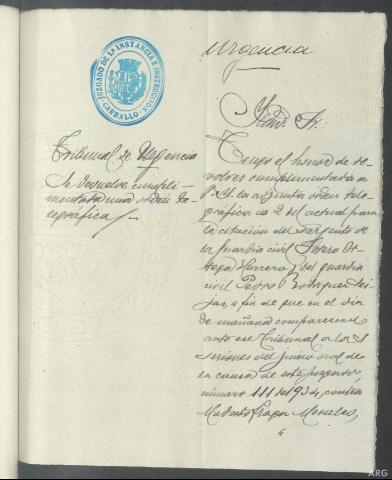 JUZGADO DE 1ª INSTANCIA E INSTRUCCION
CARBALLO
Urgencia
Tribunal de Urgencia
Se devuelve cumpli-
mentada una orden te-
legráfica
Iltmo. Sr:
Tengo el honor de de-
volver cumplimentada a
V.I. la adjunta orden tele-
gráfica de 2 del actual para
la citación del Sargento de
la Guardia civil Sotero Or-
tega Herrero y del guardia
civil Pedro Rodriguez Sei-
jas, a fin de que en el dia
de mañana comparezcan
ante ese Tribunal a las
sesiones del juicio oral de
la causa de este Juzgado
número 111 de 1934, contra
Modesto Fraga Morales,
ARG